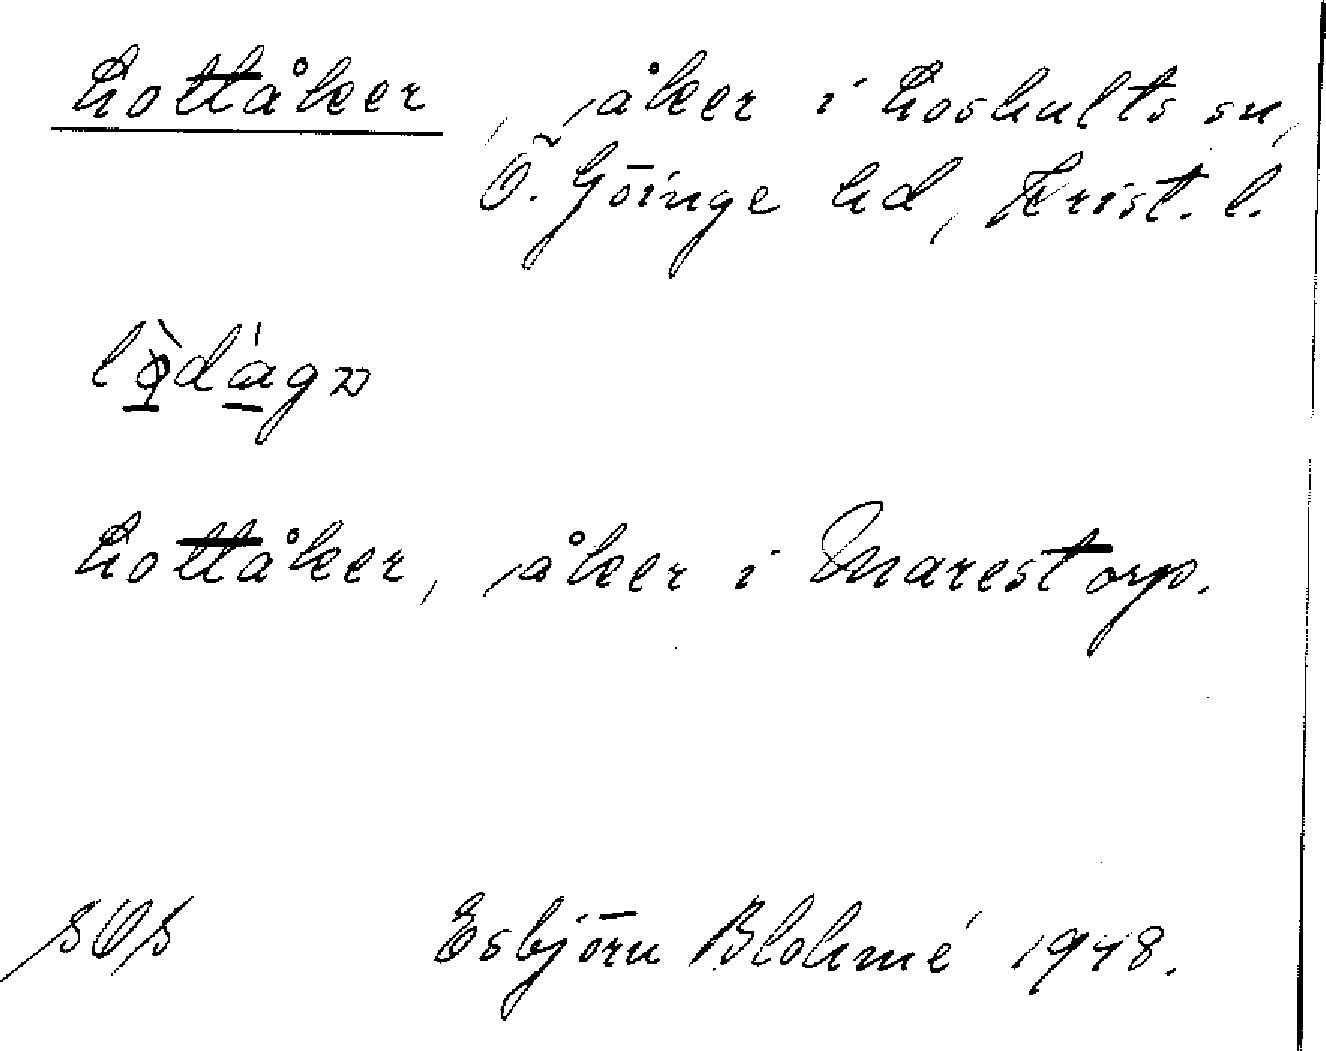 Lottåker, åker i Loshults sn,
Ö. Göinge hd, Krist. l.
Lottåker, åker i Marestorp.
SOS Esbjörn Blohmé 1948.